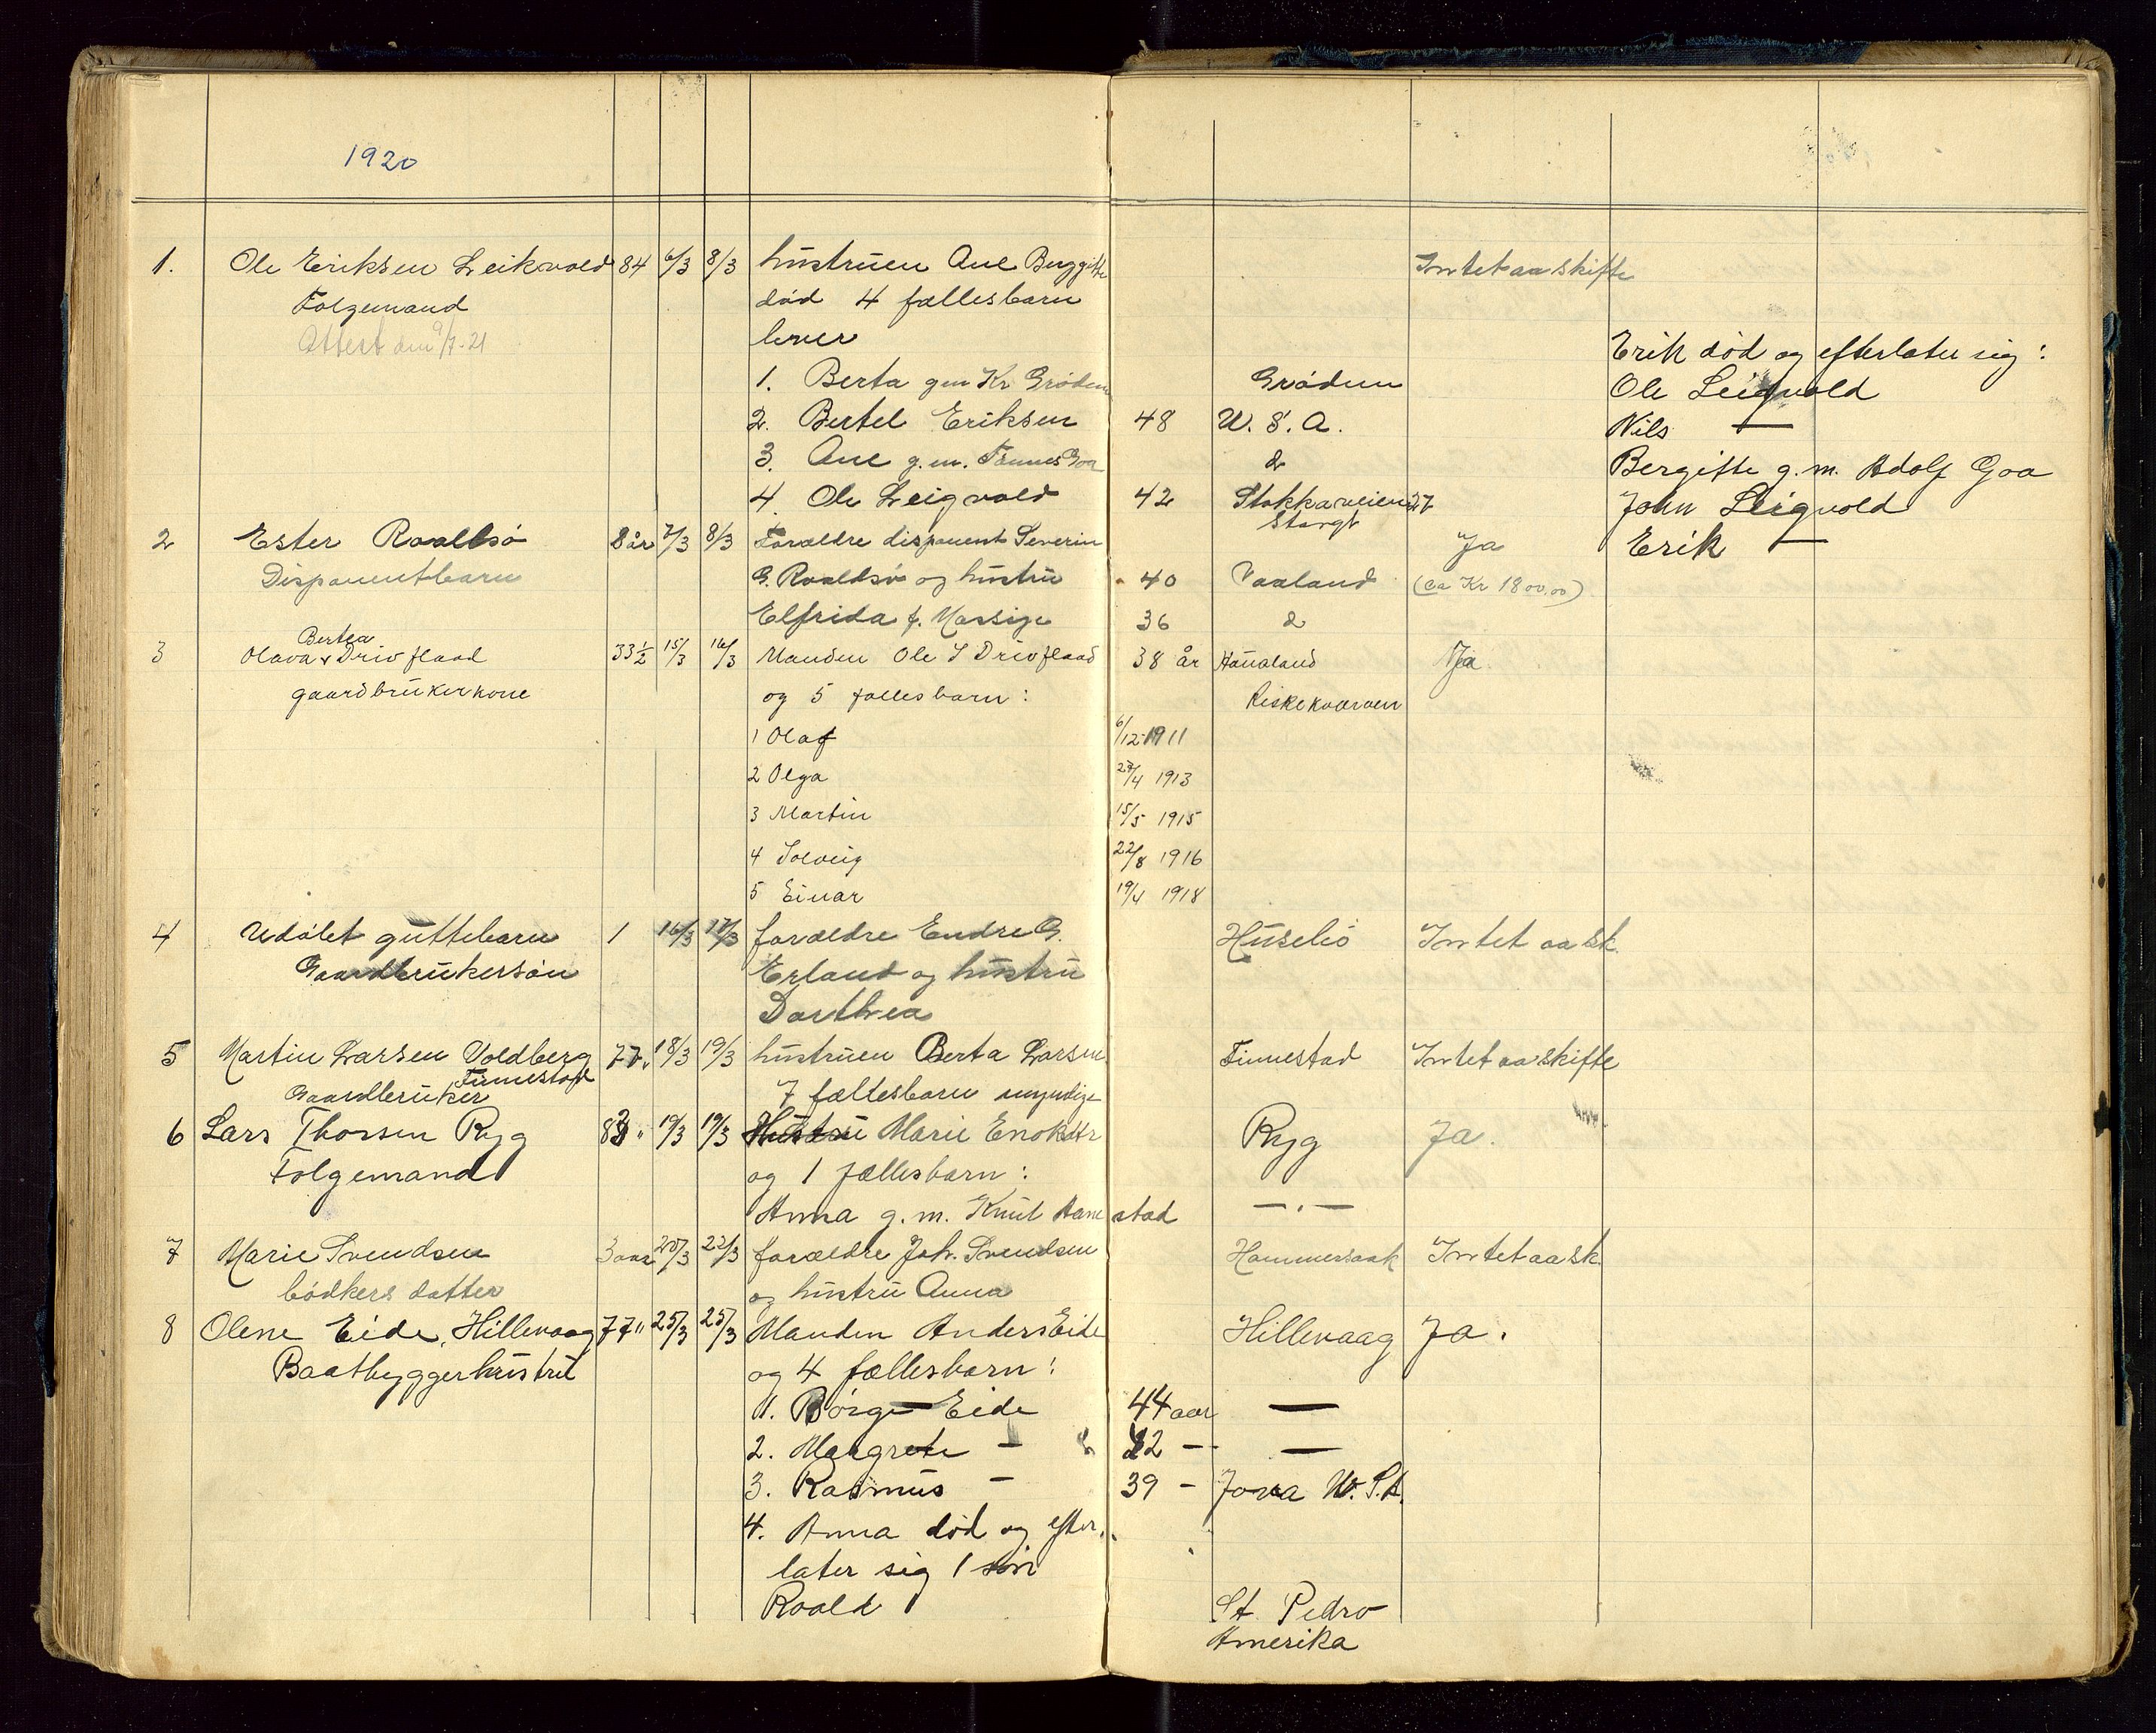 1920
1. Ole Eriksen Leikvold 84 6/3 8/3 hustruen Ane Berggitte Intet aa skifte
Folgemand død 4 fællesbarn
Attest den 9/7-21 lever Erik død og efterlater sig:
1. Berta gm Kr Grødem Grødem Ole Leigvold
2. Bertel Eriksen 48 U.S.A. Nils —
3. Ane g.m. Tønnes Goa d Bergitte g.m. Adolf Goa
4. Ole Leigvold 42 Stokkaveien 27 John Leigvold
Stavgt
2 Ester Roaldsø 8 år 7/3 8/3 Forældre disponent Severin Ja Erik —
Disponentbarn G. Roaldsø og hustru 40 Vaaland (ca Kr 1800.00)
Elfrida f. Massige 36 d
Bertea
3 Olava v Drivflaad 33½ 15/3 16/3 Manden Ole S Drivflaad 38 år Hanaland Ja
gaardbrukerkone og 5 fællesbarn: Riskekværven
1 Olaf 6/12-1911
2 Olga 27/4 1913
3 Martin 15/5 1915
4 Solveig 22/8 1916
5 Einar 19/4 1918
4 Udøbt guttebarn 1 16/3 17/3 forældre Endre G. Huselió Intet aa sk.
Gaardbrukersøn Erland og hustru
Dorthea
5 Martin Larsen Voldberg 77 18/3 19/3 hustruen Berta Larsen Finnestad Intet aa skifte
Finnestad
Gaardbruker 7 fællesbarn umyndige
6 Lars Thorsen Ryg 83 " 19/3 19/3 Hustru Marie Enoksdtr Ryg Ja.
Folgemand og 1 fællesbarn:
Anna g.m. Knut Hanestad — . —
7 Marie Svendsen 3 aar 20/3 22/3 forældre Joh. Svendsen Hammersaak Intet aa sk.
bødkers datter og hustru Anna
8 Olene Eide, Hillevaag 77 " 25/3 25/3 Manden Anders Eide Hillevaag Ja.
Baatbyggerhustru og 4 fællesbarn:
1. Børge Eide 44 aar —
2. Margrete — 42 — —
3. Rasmus — 39 — Jova U.S.A.
4. Anna død og efter-
later sig 1 søn
Roald St. Pedro
Amerika